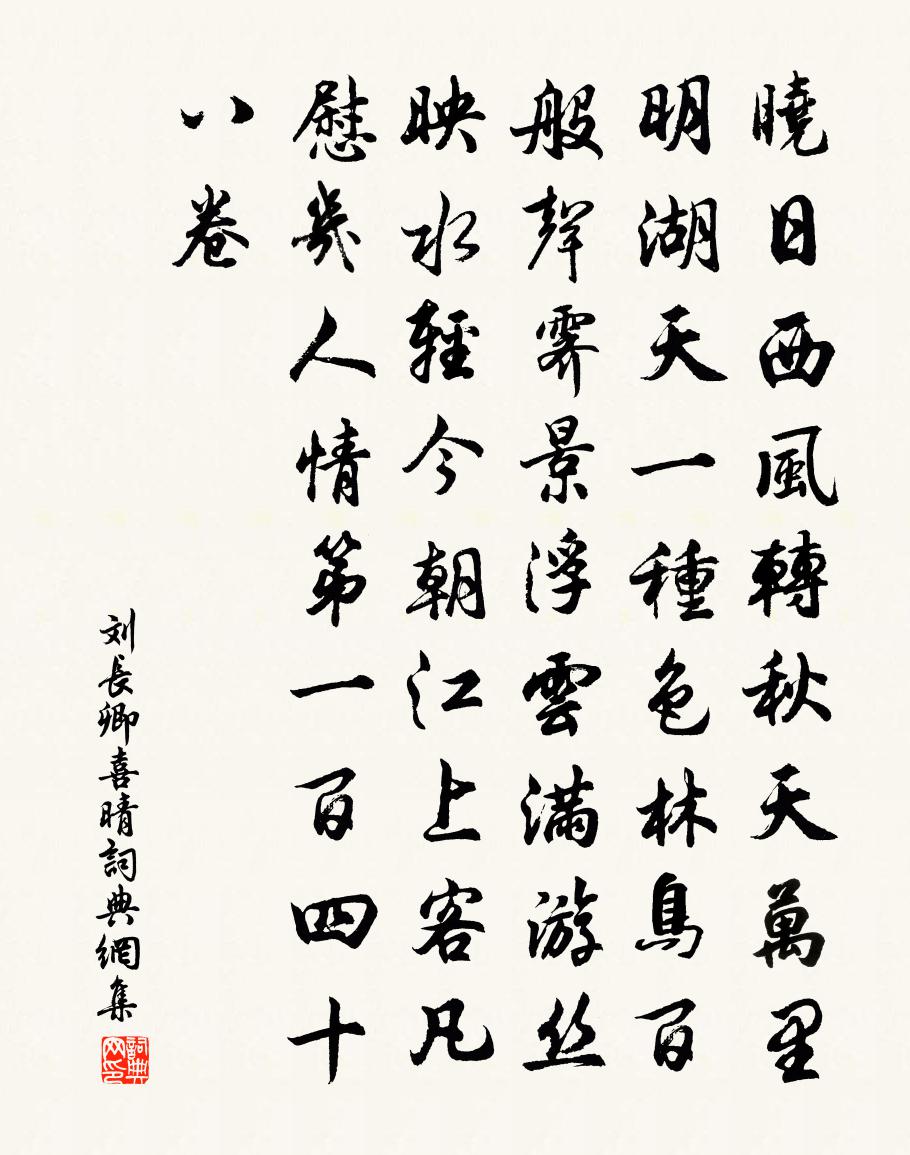 曉日西風轉秋天萬里
明湖天一種色林鳥百
般聲霽景浮雲滿游丝
映水輕今朝江上客凡
慰幾人情第一百四十
八卷
刘長卿喜晴詞典網集
詞典网印